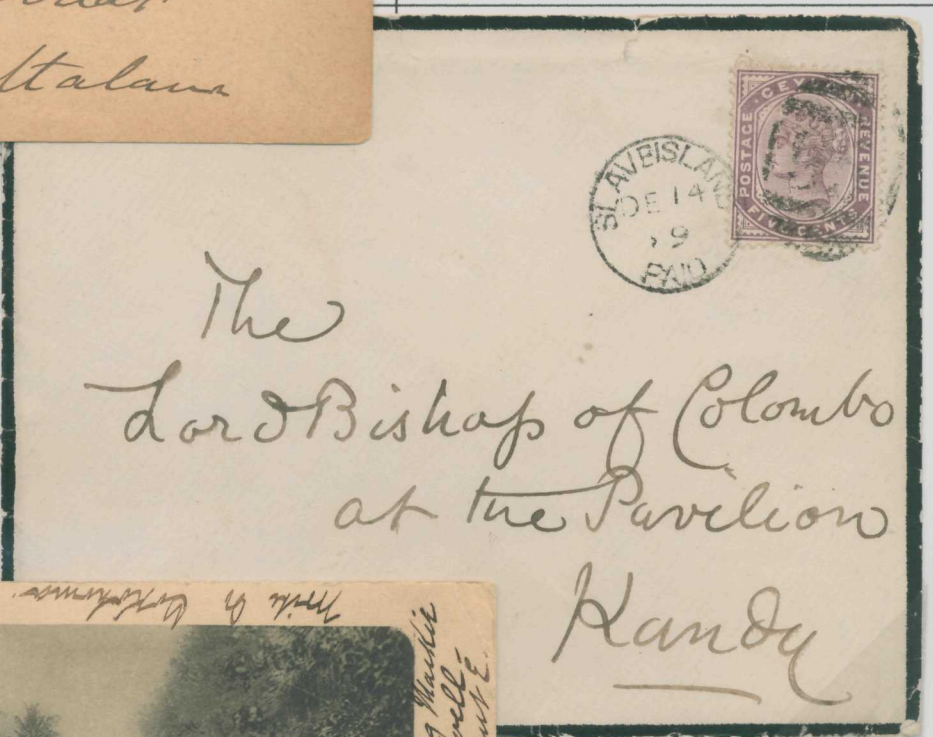 ttalawa
SLAVE ISLAND
DE 14
9
PAID
CEY
POSTAGE
REVENUE
FIVE CENTS
The
Lord Bishop of Colombo
at the Pavilion
Kandy